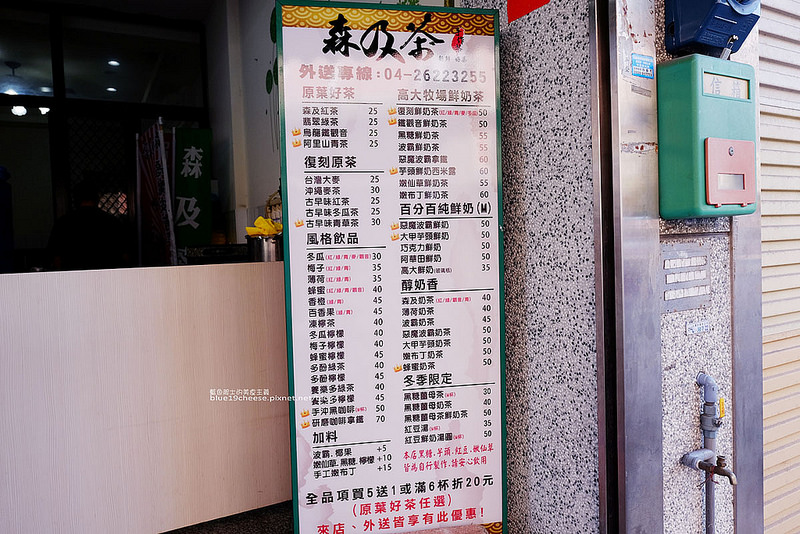 森及茶
外送專線:04-26223255
原葉好茶
森及紅茶 25
翡翠綠茶 25
烏龍鐵觀音 25
阿里山青茶 25
復刻原茶
台灣大麥 25
沖繩麥茶 30
古早味紅茶 25
古早味冬瓜茶 25
古早味青草茶 30
風格飲品
冬瓜(紅/綠/青/麥/觀音) 30
梅子(紅/綠/青) 35
薄荷(紅/綠/青) 35
蜂蜜(紅/綠/青/觀音) 40
香橙(綠/青) 45
百香果(綠/青) 40
凍檸茶 40
冬瓜檸檬 40
梅子檸檬 40
蜂蜜檸檬 45
多酚綠茶 40
多酚檸檬 45
養樂多綠茶 40
養樂多檸檬 45
手沖黑咖啡 50
研磨咖啡拿鐵 70
加料
波霸.椰果 +5
嫩仙草.黑糖.檸檬 +10
手工嫩布丁 +15
高大牧場鮮奶茶
復刻鮮奶茶(紅/綠/青/麥/冬瓜) 50
鐵觀音鮮奶茶 50
黑糖鮮奶茶 55
波霸鮮奶茶 55
惡魔波霸拿鐵 60
芋頭鮮奶西米露 60
嫩仙草鮮奶茶 55
嫩布丁鮮奶茶 60
百分百純鮮奶(M)
惡魔波霸鮮奶 50
大甲芋頭鮮奶 50
巧克力鮮奶 50
阿華田鮮奶 50
高大鮮奶(玻璃瓶) 35
醇奶香
森及奶茶(紅/綠/青/觀音) 40
薄荷奶茶 40
波霸奶茶 45
惡魔波霸奶茶 50
大甲芋頭奶茶 50
嫩布丁奶茶 50
蜂蜜奶茶 50
冬季限定
黑糖薑母茶 30
黑糖薑母奶茶 40
黑糖薑母茶鮮奶茶 50
紅豆湯 35
紅豆鮮奶湯圓 50
本店黑糖.芋頭.紅豆.嫩仙草
皆為自行製作.請安心飲用
全品項買5送1或滿6杯折20元
(原葉好茶任選)
來店、外送皆享有此優惠!
森及
信箱
藍色起士的美食主義
blue19cheese.pixnet.net